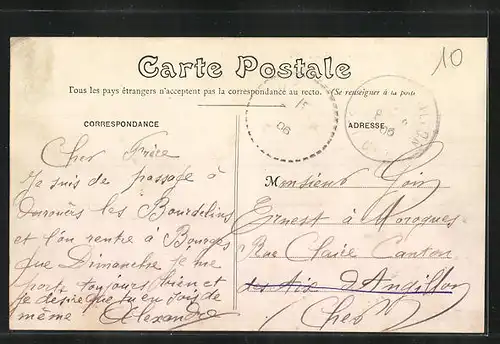 10
Carte Postale
Tous les pays étrangers n'acceptent pas la correspondance au recto. (Se renseigner à la poste
CORRESPONDANCE
ADRESSE
15
06
8
06
Cher Frère
Je suis de passage à
les Bourdelins
et l'on rentre à Bourges
que Dimanche je me
porte toujours bien et
je désire que tu en sois de
même Alexandre
Monsieur
Ernest à Morogues
Rue Claire Canton
des Aix d'Angillon
(Cher)